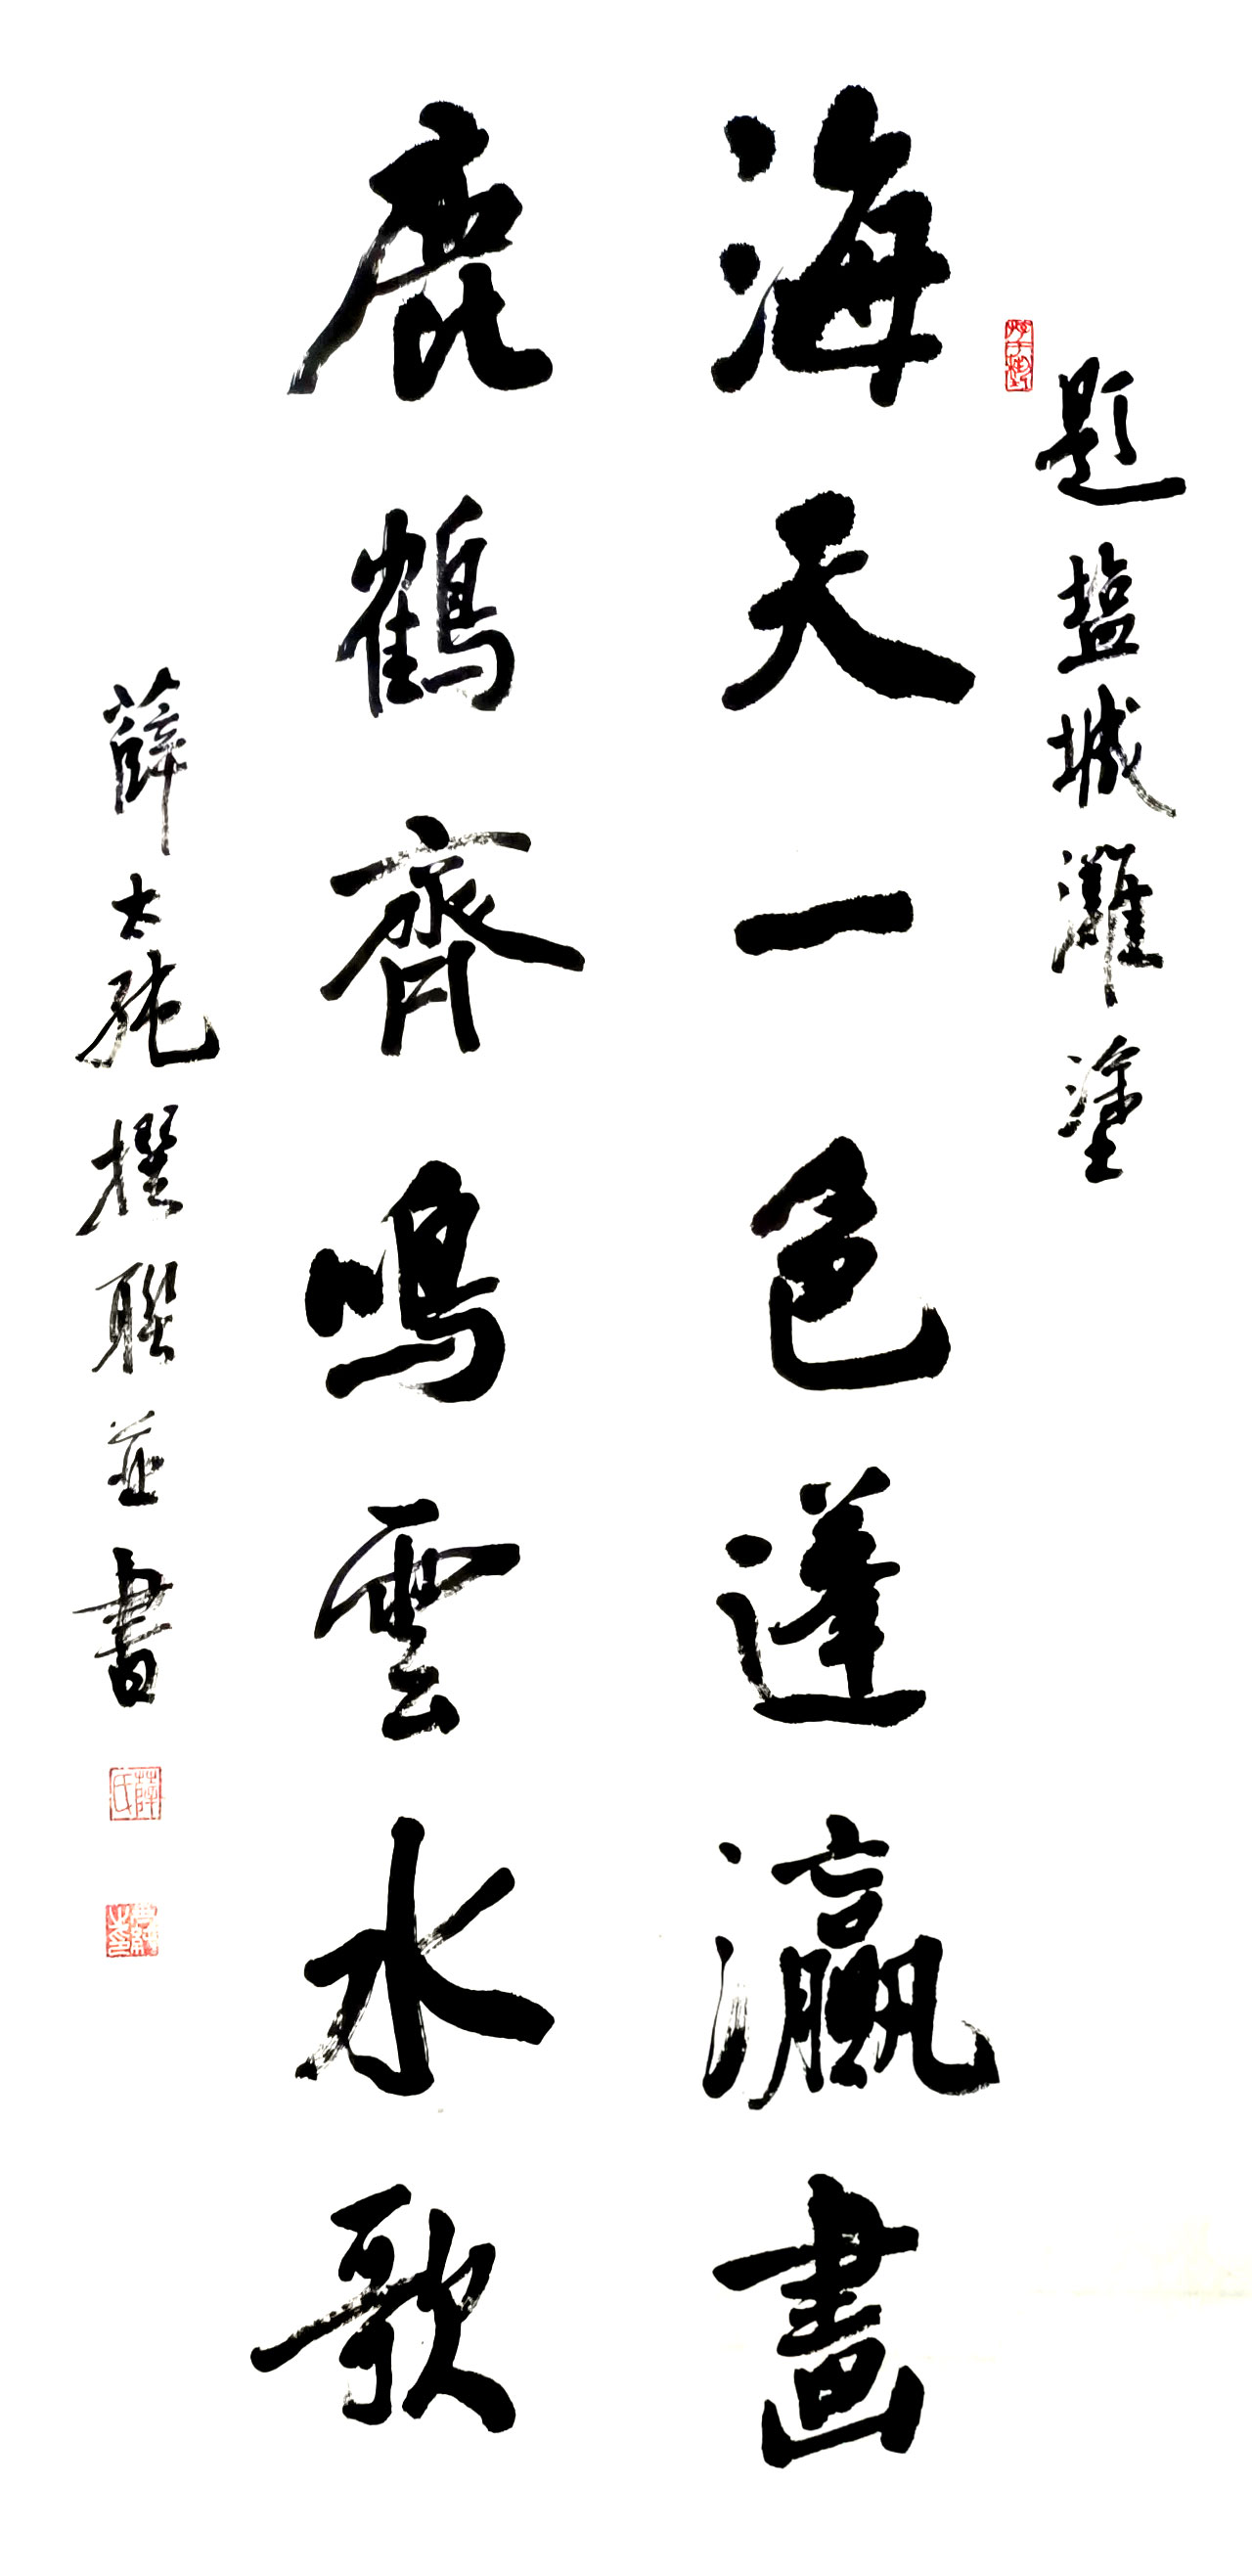 題盐城灘塗
海天一色蓬瀛畫
鹿鶴齊鳴雲水歌
薛太純撰聯並書
薛氏